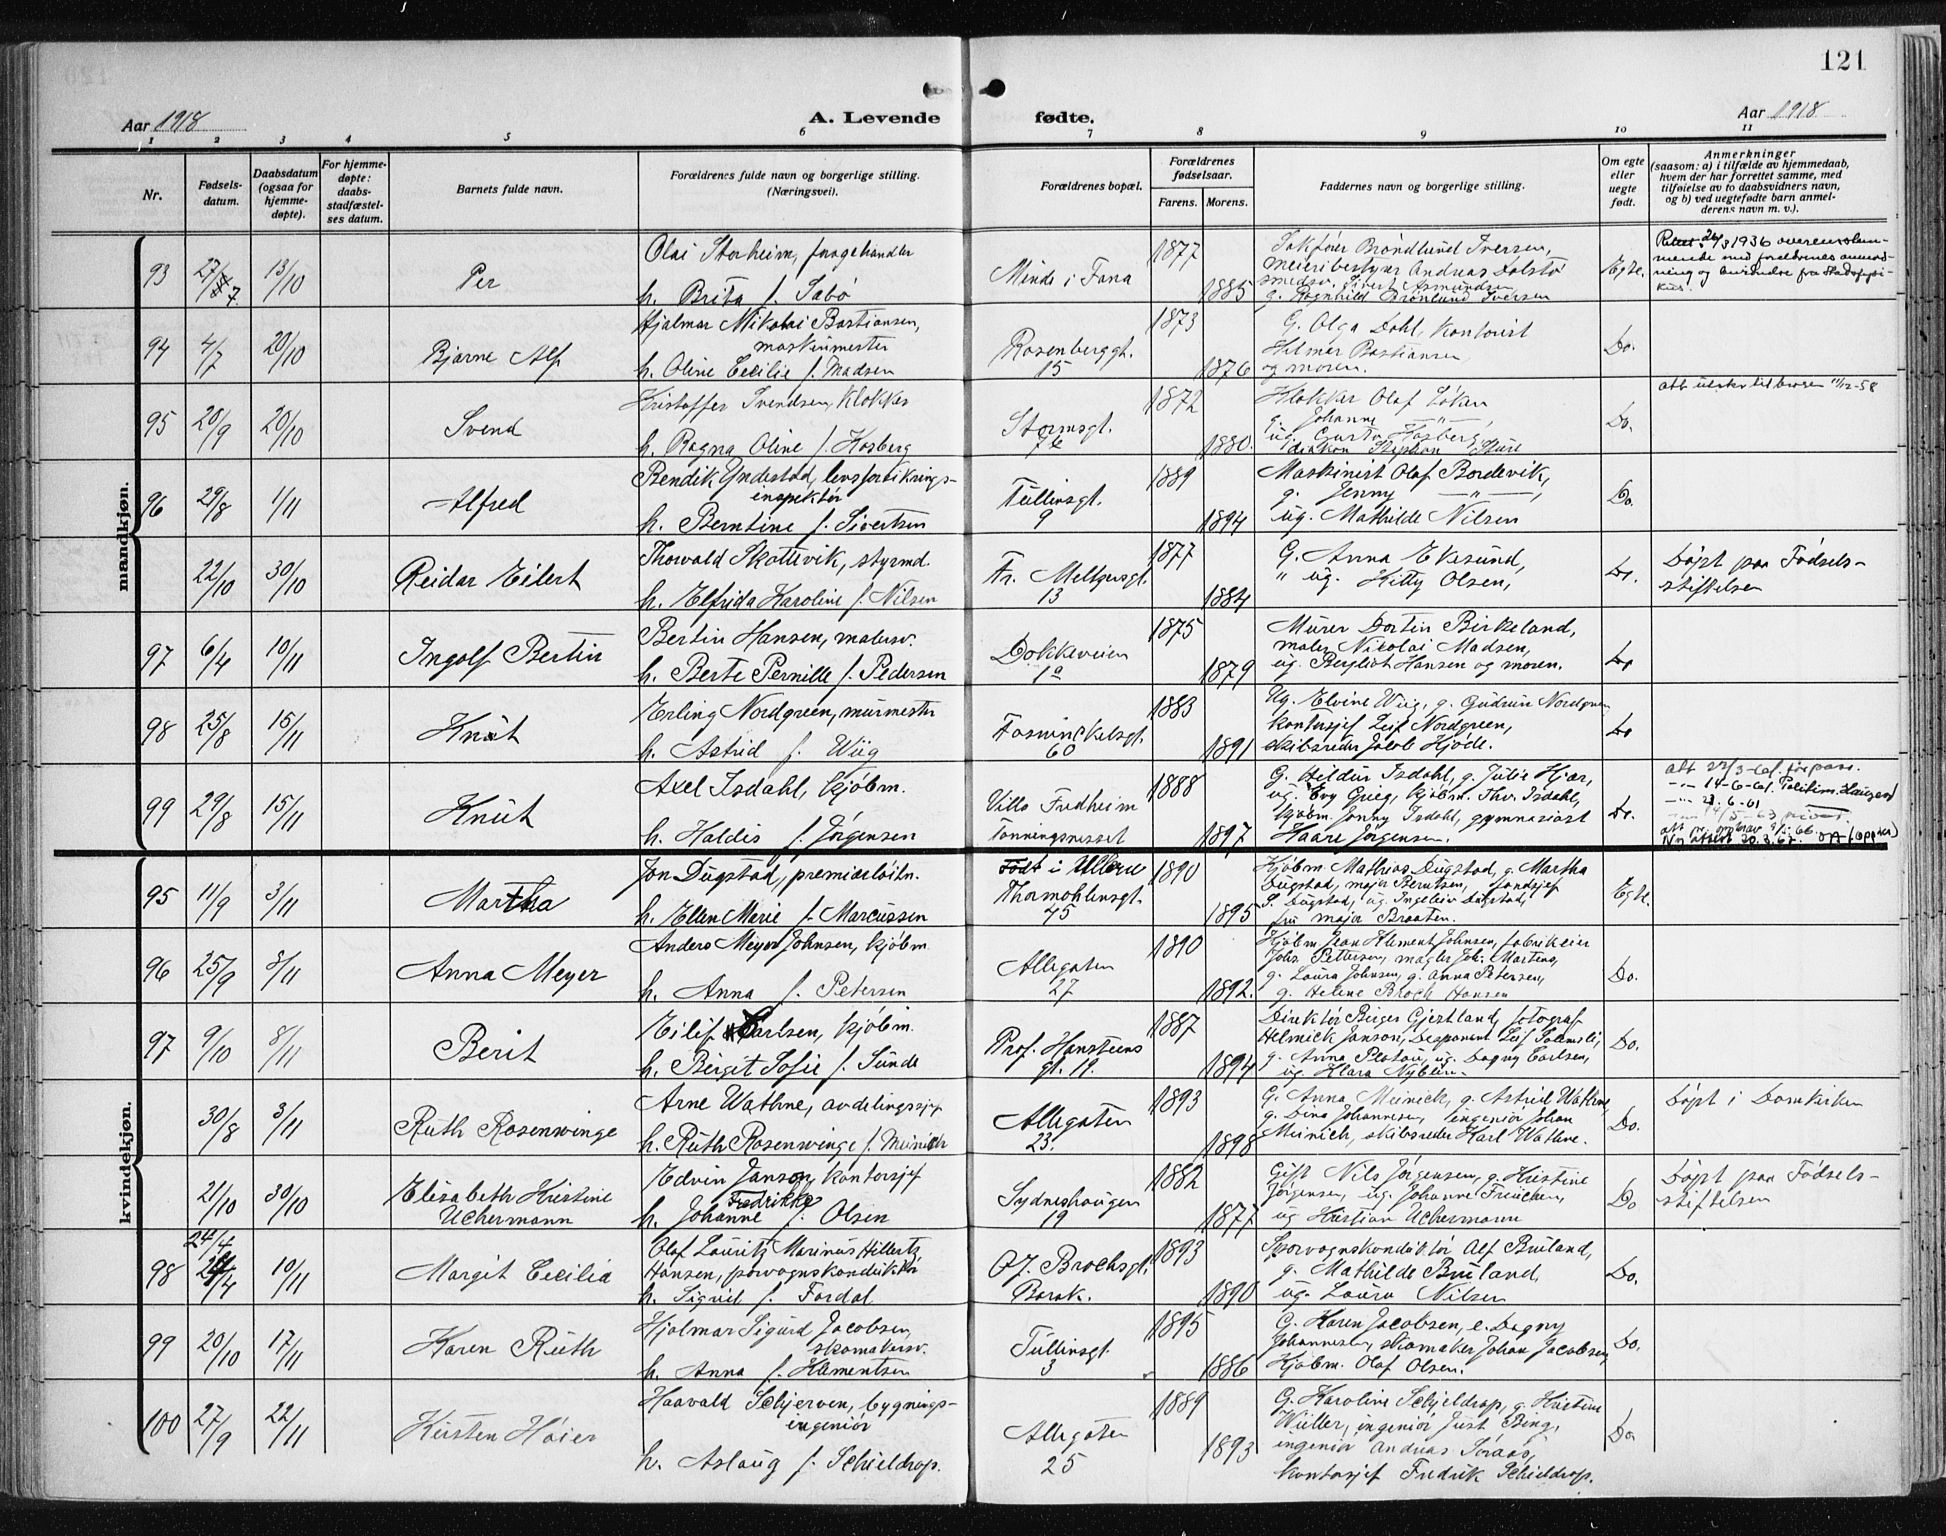 121
Aar 1918
A. Levende
fødte.
Aar 1918
1 2 3 4 5 6 7 8 9 10 11
Nr.
Fødsels-
datum.
Daabsdatum
(ogsaa for
hjemme-
døpte).
For hjemme-
døpte:
daabs-
stadfæstel-
ses datum.
Barnets fulde navn.
Forældrenes fulde navn og borgerlige stilling.
(Næringsvei).
Forældrenes bopæl.
Forældrenes
fødselsaar.
Farens. Morens.
Faddernes navn og borgerlige stilling.
Om egte
eller
uegte
født.
Anmerkninger
(saasom: a) i tilfælde av hjemmedaab,
hvem der har forrettet samme, med
tilføielse av to daabsvidners navn,
og b) ved uegtefødte barn anmel-
derens navn m. v.).
mandkjøn.
93 27/7 13/10 Per
Olai Storheim, fargehandler
h. Brita f. Sabö
Minde i Fana
1877 1885
Sakförer Bröndlund Iversen,
meieribestyrer Andreas Dolstö
smedsv. Sivert Asmundsen
g. Ragnhild Brönlund Iversen
Egte.
26/3 1936 overensstem-
mende med foreldrenes anmod-
ning og
94 4/7 20/10 Bjarne Alf
Hjalmar Mikolai Bastiansen,
maskinmester
h. Oline Cecilie f. Madsen
Rosenberggt.
15
1873 1876
G. Olga Dahl, Kontorist
Hilmar Bastiansen
og moren.
Do.
95 20/9 20/10 Svend
Kristoffer Svendsen, Klokker
h. Ragna Oline f. Hosberg
Stormsgt.
1872 1880.
Klokker Olaf Löken
g. Johanne —"—,
ug. Hosberg,
diakon Stephan Sture
Do.
11/12-58
96 29/8 1/11 Alfred
Bendik Yndestad, livsforsikrings-
inspektör
h. Berntine f. Sivertsen
Tullinsgt.
9
1889 1894
Maskinist Olaf Bordevik,
g. Jenny —"—,
ug. Mathilde Nilsen
Do.
22/10 30/10 Reidar Eilert
Thorvald Skottevik, styrmd.
h. Elfrida Karoline f. Nilsen
Fr. Meltzersgt.
13
1877 1884
G. Anna Ekesund,
" ug. Kitty Olsen,
Do.
Döpt paa Födsels-
stiftelsen
97 6/4 10/11 Ingolf Bertin
Bertin Hansen, malersv.
h. Berte Pernille f. Pedersen
Dokkeveien
1a
1875 1879
Murer Dortin Birkeland,
maler Nicolai Madsen,
ug. Bergliot Hansen og moren.
Do
98 25/8 15/11 Knut
Erling Nordgreen, murmester
h. Astrid f. Wiig
Fosswinckelsgt.
60
1883 1891
Ug. Elvine Wiig, g. Gudrun Nordgreen
kontorsjef Leif Nordgreen,
skibsreder Jacob Kjöde.
Do
99 29/8 15/11 Knut
Axel Isdahl, kjöbm.
h. Haldis f. Jörgensen
Villa Fredheim
Tonningsnesset
1888 1897
G. Hildur Isdahl, g. Julie Kjær,
ug. Evy Grieg, kjöbm. Thv. Isdahl,
kjöbm. Jonny Isdahl, gymnasiast
Haare Jörgensen.
Do.
att 23/3-61. for pass.
—"— 14-6-61.
—"— 21-6-61
—"— 14/5-63
Ny attest 20.3.67.
kvindekjøn.
95 11/9 3/11 Martha
Jon Dugstad, premierlöitn.
h. Ellen Marie f. Marcussen
Födt i Ullern
Thormöhlensgt.
45
1890 1895
Kjöbm Mathias Dugstad, g. Martha
Dugstad, major Berntsen, landsjef
S. Dugstad, ug. Ingeleiv Dugstad,
fru major Braaten.
Egte.
96 25/9 8/11 Anna Meyer
Anders Meyer Johnsen, kjöbm.
h. Anna f. Petersen
Allegaten
27
1890 1892.
Kjöbm Jean Klement Johnsen, fabrikeier
Johs Pettersen, megler Joh. Martens,
g. Laura Johnsen, g. Anna Petersen,
g. Helene Broch Hansen
Do.
97 9/10 8/11 Berit
Eilif Carlsen, kjöbm.
h. Birgit Sofie f. Sunde
Prof. Hansteens
gt. 19.
1887 1894
Direktör Birger Gjestland, fotograf
Helmick Janson, Disponent Leif
g. Anna Platou, ug. Dagny Carlsen,
ug. Klara Nyblin.
Do.
30/8 3/11 Ruth Rosenwinge
Arne Wathne, avdelingssjef
h. Ruth Rosenwinge f. Meinich
Allegaten
23.
1893 1898
G. Anna Meinick, g. Astrid Wathne,
g. Dina Johannesen, ingeniör Johan
Meinich, skibsreder Karl Wathne.
Do.
Döpt i Domkirken
21/10 30/10 Elisabeth Kristine
Uchermann
Edvin Janson, kontorsjef
Fredrikke
h. Johanne f. Olsen
Sydneshaugen
19
1882 1877
Gift Nils Jörgensen, g. Kristine
Jörgensen, ug. Johanne Freuchen,
ug Kristian Uchermann
Do
Döpt paa Födsels-
stiftelsen
24/4
98 10/11 Margit Cecilia
Olaf Lauritz Marinus Hillertz
Hansen, sporvognskonduktör
h. Sigrid f. Fardal
O.J. Brochsgt.
Barak.
1893 1890
Sporvognskonduktör Alf Buland,
g. Mathilde Buland,
ug. Laura Nilsen
Do.
99 20/10 17/11 Karen Ruth
Hjalmar Sigurd Jacobsen,
skomakersv.
h. Anna f. Klementsen
Tullinsgt.
3
1895 1886
G. Karen Jacobsen, e. Dagny
Johannesen, skomaker Johan Jacobsen,
Kjöbm. Olaf Olsen.
Do.
100 27/9 22/11 Kirsten Höier
Haavald Schjerven, bygnings-
ingeniör
h. Aslaug f. Schieldrop.
Allegaten
25
1889 1893
G. Karoline Schjeldrop, g. Kristine
Wüller, ingeniör Just Bing,
ingeniör Andreas Soraas,
kontorsjef Fredrik Schieldrop.
Do